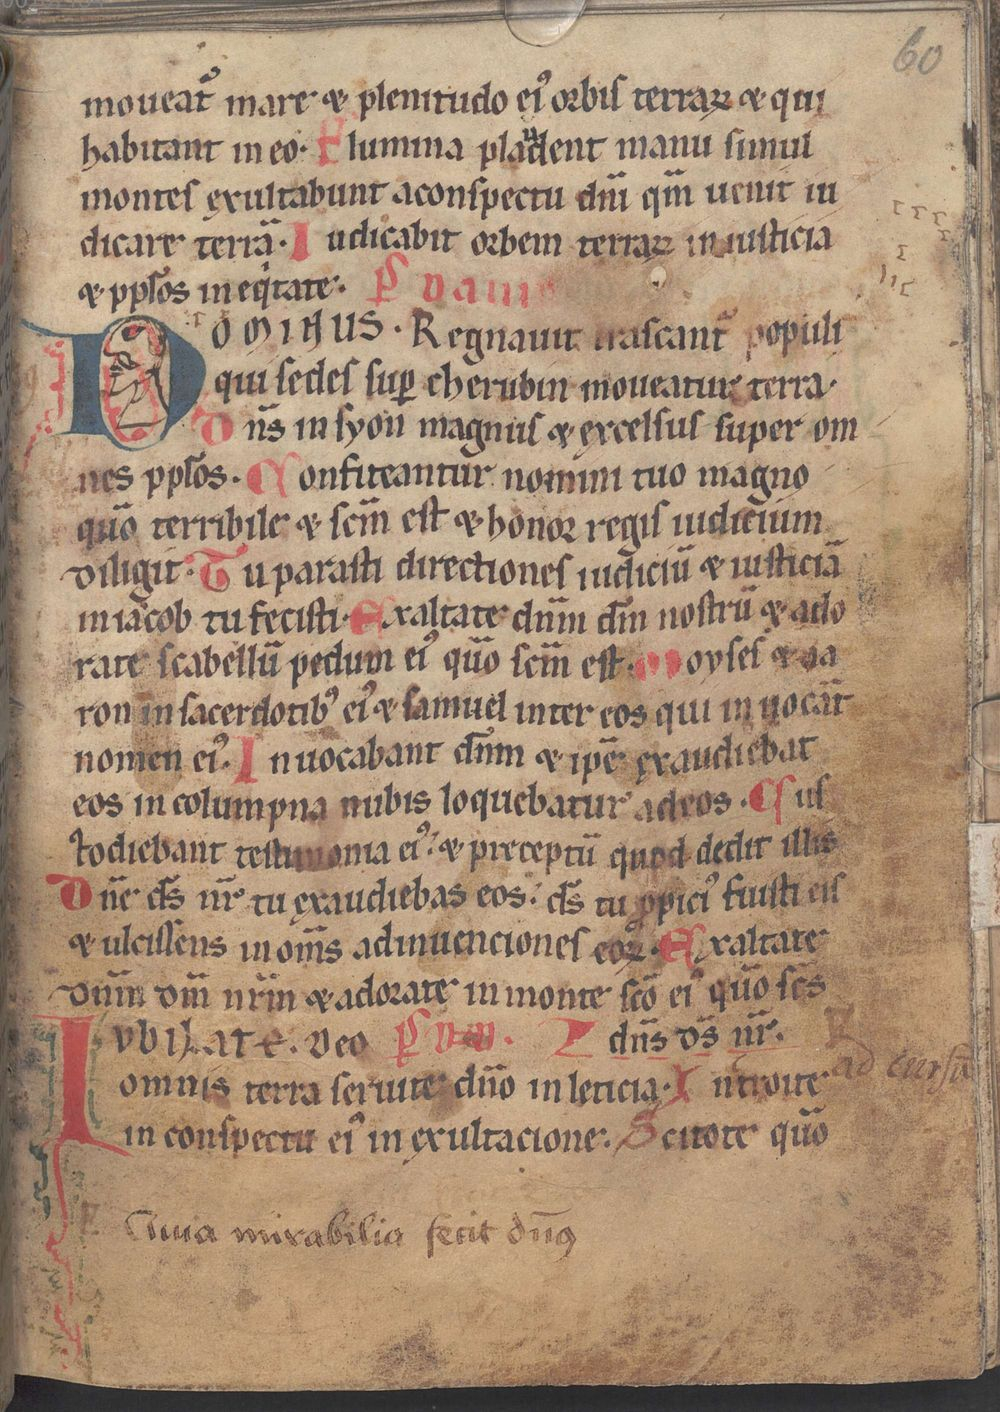 60
moueat᷑ mare & plenitudo ei᷒ orbis terraꝝ & qui
habitant in eo. Flumina plaudent manu simul
montes exultabunt aconspectu dn̄i qm̄ uenit iu
dicare terrā. Iudicabit orbem terraꝝ in iusticia
& pplos in eqͥtate. Ps̄ Dauit
DOMINUS. Regnauit irascant᷑ populi
qui sedes suꝑ cherubin moueatur terra.
Dn̄s in syon magnus & excelsus super om
nes pplos. Confiteantur nomini tuo magno
quō terribile & scm̄ est & honor regis iudicium
diligit. Tu parasti directiones iudiciū & iusticiā
in iacob tu fecisti. Exaltate dn̄m dm̄ nostrū & ado
rate scabellū pedum ei᷒ quō scm̄ est. Moyses & aa
ron in sacerdotib᷒ ei᷒ & samuel inter eos qui inuocāt
nomen ei᷒. Inuocabant dn̄m & ipe̅ exaudiebat
eos in columpna nubis loquebatur ad eos. Cus
todiebant testimonia ei᷒ & preceptū quod dedit illis
Dn̄e ds̄ nr̄ tu exaudiebas eos. ds̄ tu ꝓpici᷒ fuisti eis
& ulcissens in om̄s adinuenciones eoꝝ. Exaltate
dn̄m dm̄ nr̄m & adorate in monte scō ei᷒ quō scs̄
IUBILATE. Deo Ps̄ dn̄s ds̄ nr̄.
omnis terra seruite dn̄o in leticia. Introite
ad cursū
in conspectu ei᷒ in exultacione. Scitote quō
mirabilia fecit dn̄us